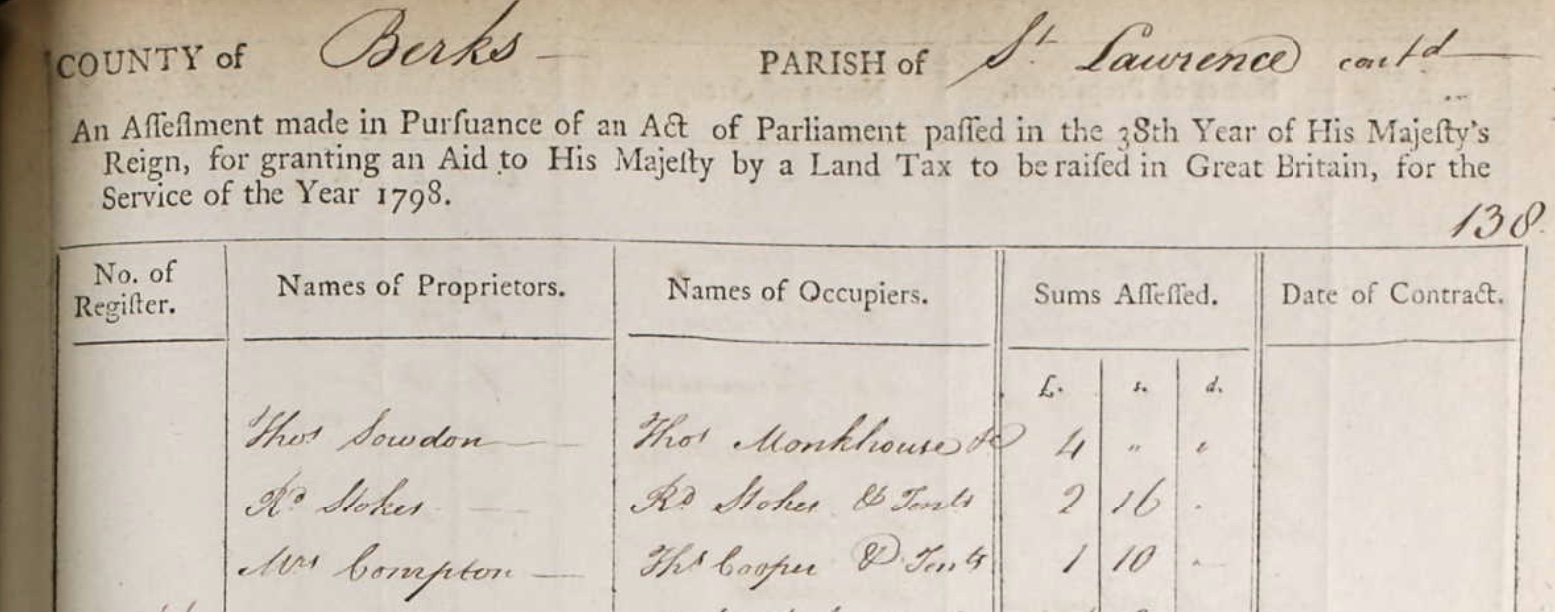 COUNTY of Berks — PARISH of St Lawrence contd —
An Aſſeſſment made in Purſuance of an Act of Parliament paſſed in the 38th Year of His Majeſty's
Reign, for granting an Aid to His Majeſty by a Land Tax to be raiſed in Great Britain, for the
Service of the Year 1798.
138.
No. of Regiſter. Names of Proprietors. Names of Occupiers. Sums Aſſeſſed. Date of Contract.
£. s. d.
Thos Sowdon — Thos Monkhouse &c 4 " "
Rd Stokes — Rd Stokes & Tents 2 16 .
Mrs Compton — Ths Cooper & Tents 1 10 .